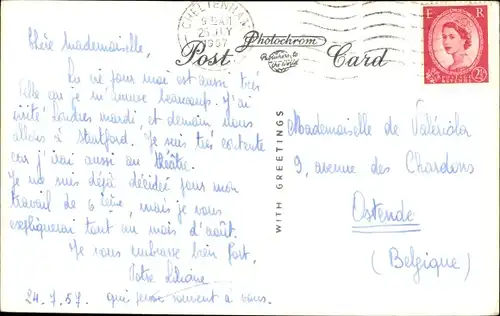 CHELTENHAM
9 30 AM
25 JLY
1957
Post Card
Photochrom
Publishers to
the World
E R
POSTAGE
REVENUE
2½
D
Chère Mademoiselle,
Ici pour moi est aussi très
belle car je m'amuse beaucoup. J'ai
visité Londres mardi et demain nous
allons à Stratford. Je suis très contente
car j'irai aussi au théâtre.
Je me suis déjà décidée pour mon
travail de 6 ième, mais je vous
expliquerai tout au mois d'août.
Je vous embrasse bien fort,
Votre Liliane
24.7.57. qui pense souvent à vous.
WITH GREETINGS
Mademoiselle de Valériola
9, avenue des Chardons
Ostende
(Belgique)